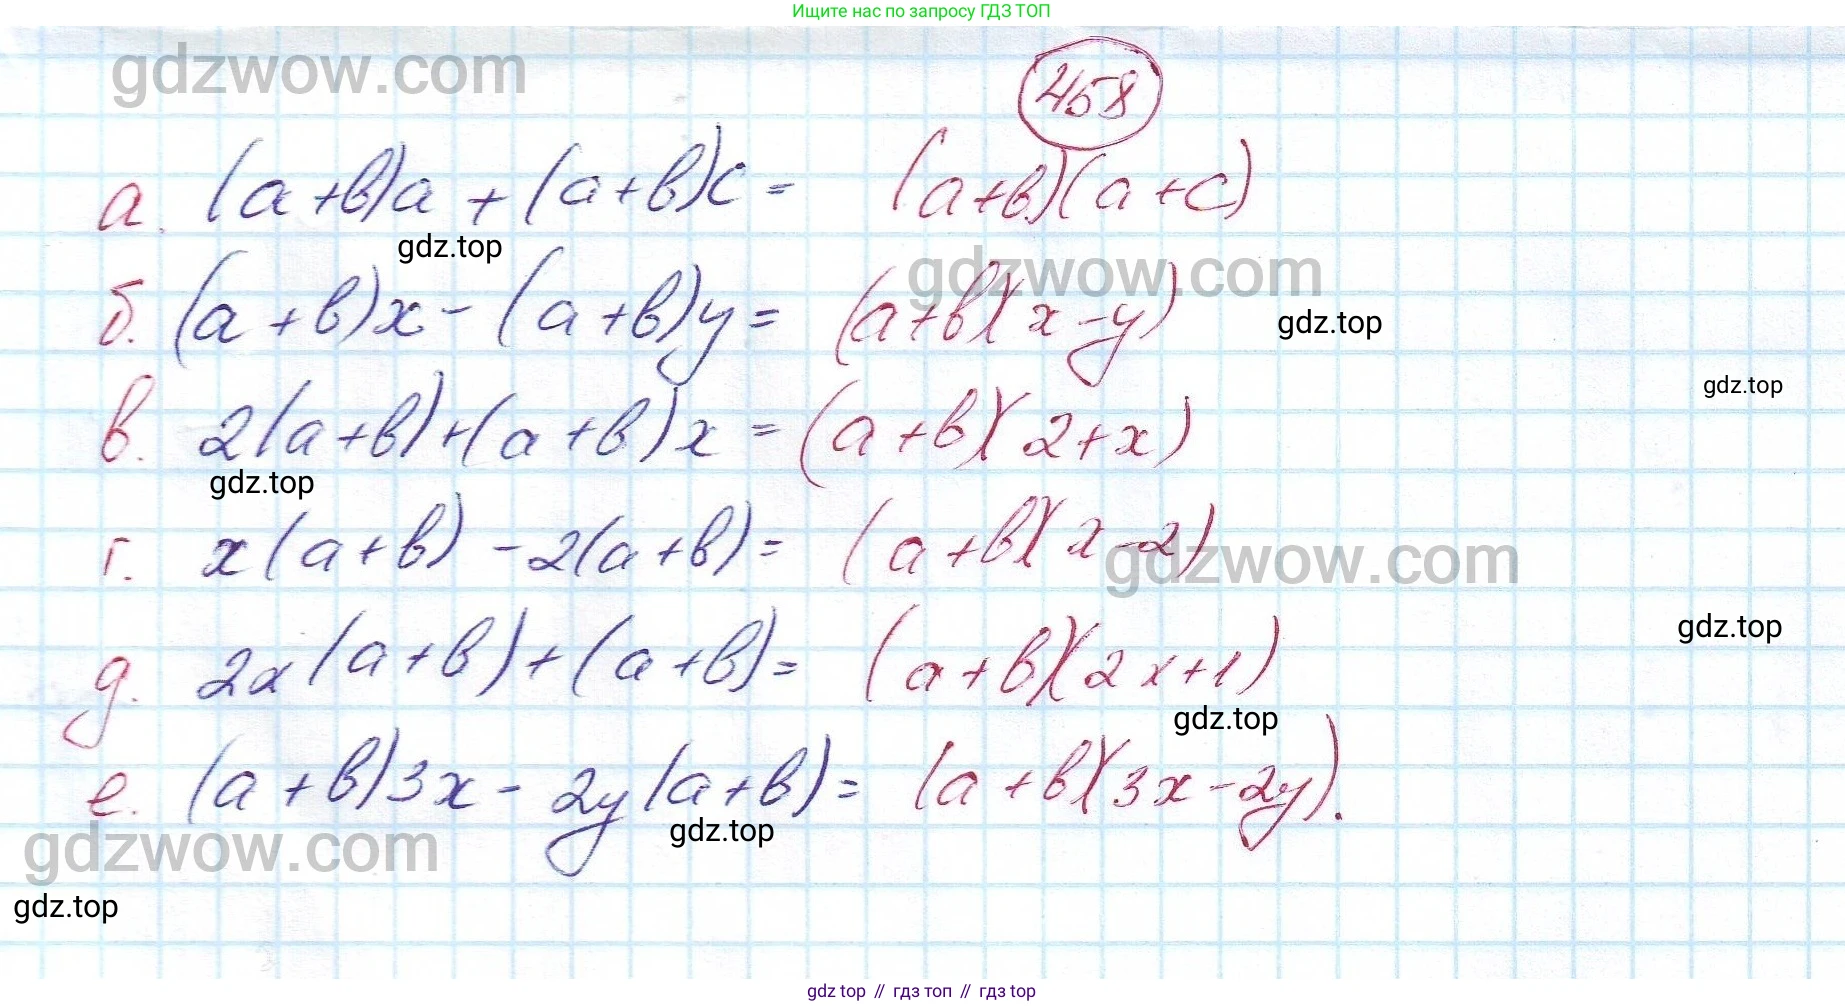 Ищите нас по запросу ГДЗ ТОП
gdzwow.com
458
а. (a+b)a + (a+b)c = (a+b)(a+c)
gdz.top
gdzwow.com
б. (a+b)x - (a+b)y = (a+b)(x-y)
gdz.top
gdz.top
в. 2(a+b)+(a+b)x = (a+b)(2+x)
gdz.top
г. x(a+b) - 2(a+b) = (a+b)(x-2)
gdzwow.com
gdz.top
д. 2x(a+b)+(a+b) = (a+b)(2x+1)
gdz.top
е. (a+b)3x - 2y(a+b) = (a+b)(3x-2y).
gdz.top
gdzwow.com
gdz.top
gdz top // гдз топ // гдз top